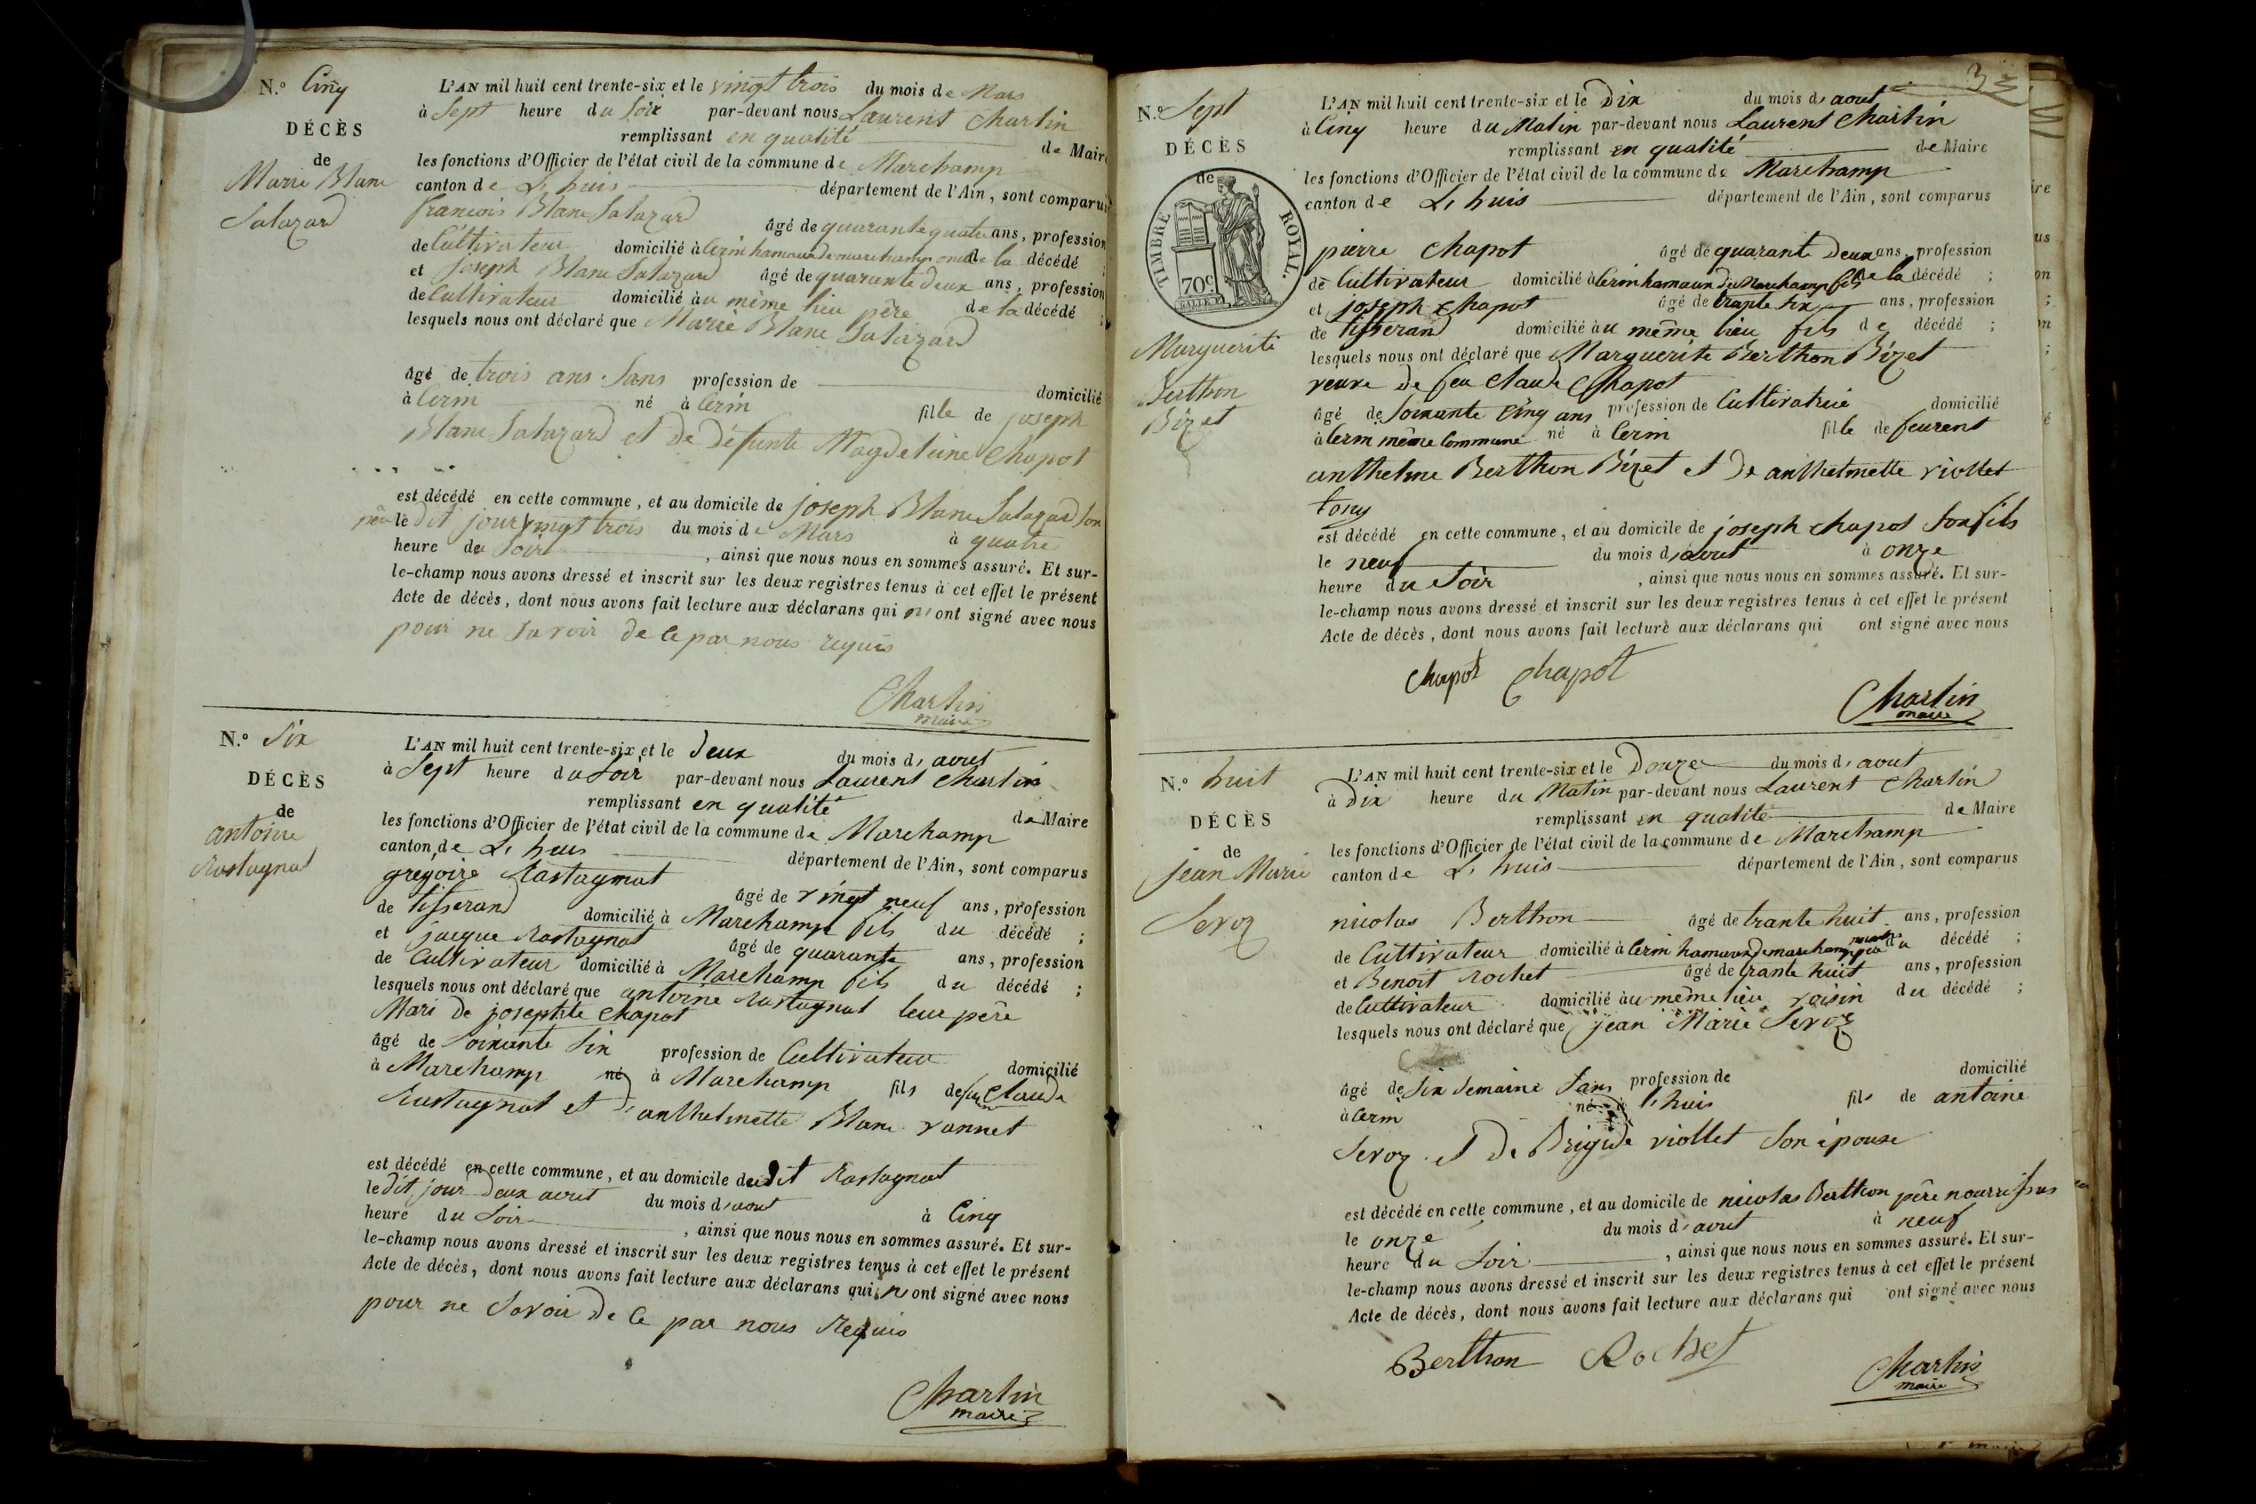 N.o Cinq
DÉCÈS
de
Marie Blanc
Salazard
L'AN mil huit cent trente-six et le vingt trois du mois de Mars
à Sept heure du Soir par-devant nous Laurent Charlin
remplissant en qualité de Maire
les fonctions d'Officier de l'état civil de la commune de Marchamp
canton de L'huis département de l'Ain, sont comparus
francois Blanc Salazard âgé de quarante quatre ans, profession
de Cultivateur domicilié à Cerin hamaux de marchamp oncle de la décédé ;
et joseph Blanc Salazard âgé de quarante deux ans, profession
de Cultivateur domicilié au même lieu père de la décédé ;
lesquels nous ont déclaré que Marie Blanc Salazard
âgé de trois ans Sans profession de domicilié
à Cerin né à Cerin fille de joseph
Blanc Salazard et de défunte Magdeleine Chapot
est décédé en cette commune, et au domicile de joseph Blanc Salazard son
père le dit jour vingt trois du mois de Mars à quatre
heure du Soir , ainsi que nous nous en sommes assuré. Et sur-
le-champ nous avons dressé et inscrit sur les deux registres tenus à cet effet le présent
Acte de décès, dont nous avons fait lecture aux déclarans qui n'ont signé avec nous
pour ne Savoir de Ce par nous requis
Charlin
maire
N.o Six
DÉCÈS
de
antoine
Rastagnat
L'AN mil huit cent trente-six et le deux du mois d'aout
à Sept heure du Soir par-devant nous Laurent Charlin
remplissant en qualité de Maire
les fonctions d'Officier de l'état civil de la commune de Marchamp
canton de L'huis département de l'Ain, sont comparus
gregoire Rastagnat âgé de vingt neuf ans, profession
de tisserand domicilié à Marchamp fils du décédé ;
et jacque Rastagnat âgé de quarante ans, profession
de Cultivateur domicilié à Marchamp fils du décédé ;
lesquels nous ont déclaré que antoine Rastagnat leur père
Mari de josephte Chapot
âgé de Soixante Six profession de Cultivateur domicilié
à Marchamp né à Marchamp fils de feu Claude
Rastagnat et d'anthelmette Blanc vonnet
est décédé en cette commune, et au domicile dudit Rastagnat
le dit jour deux aout du mois d'aout à Cinq
heure du Soir , ainsi que nous nous en sommes assuré. Et sur-
le-champ nous avons dressé et inscrit sur les deux registres tenus à cet effet le présent
Acte de décès, dont nous avons fait lecture aux déclarans qui n'ont signé avec nous
pour ne Savoir de Ce par nous Requis
Charlin
maire
3
N.o Sept
DÉCÈS
de
TIMBRE ROYAL.
70c
Marguerite
Berthon
Bizet
L'AN mil huit cent trente-six et le Dix du mois d'aout
à Cinq heure du Matin par-devant nous Laurent Charlin
remplissant en qualité de Maire
les fonctions d'Officier de l'état civil de la commune de Marchamp
canton de L'huis département de l'Ain, sont comparus
pierre Chapot âgé de quarante Deux ans, profession
de Cultivateur domicilié à Cerin hamaux de Marchamp fils de la décédé ;
et joseph Chapot âgé de trante Six ans, profession
de tisserand domicilié au même lieu fils de décédé ;
lesquels nous ont déclaré que Marguerite Berthon Bizet
veuve de feu Claude Chapot
âgé de Soixante Cinq ans profession de Cultivatrice domicilié
à Cerin même Commune né à Cerin fille de feurent
anthelme Berthon Bizet et de anthelmette viollet
tony
est décédé en cette commune, et au domicile de joseph Chapot Son fils
le neuf du mois d'aout à onze
heure du Soir , ainsi que nous nous en sommes assuré. Et sur-
le-champ nous avons dressé et inscrit sur les deux registres tenus à cet effet le présent
Acte de décès, dont nous avons fait lecture aux déclarans qui ont signé avec nous
Chapot Chapot
Charlin
maire
N.o huit
DÉCÈS
de
jean Marie
Servoz
L'AN mil huit cent trente-six et le Douze du mois d'aout
à Dix heure du Matin par-devant nous Laurent Charlin
remplissant en qualité de Maire
les fonctions d'Officier de l'état civil de la commune de Marchamp
canton de L'huis département de l'Ain, sont comparus
nicolas Berthon âgé de trante huit ans, profession
de Cultivateur domicilié à Cerin hamaux de marchamp du décédé ;
et Benoit Rochet âgé de trante huit ans, profession
de Cultivateur domicilié au même lieu voisin du décédé ;
lesquels nous ont déclaré que jean Marie Servoz
âgé de Six Semaine Sans profession de domicilié
à Cerin né à l'huis fils de antoine
Servoz et de Brigide viollet Son épouse
est décédé en cette commune, et au domicile de nicolas Berthon père nourrissus
le onze du mois d'aout à neuf
heure du Soir , ainsi que nous nous en sommes assuré. Et sur-
le-champ nous avons dressé et inscrit sur les deux registres tenus à cet effet le présent
Acte de décès, dont nous avons fait lecture aux déclarans qui ont signé avec nous
Berthon Rochet
Charlin
maire